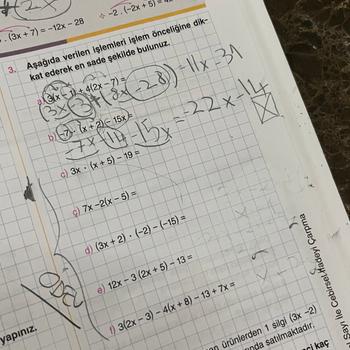 . (3x + 7) = –12x – 28
÷ –2 . (–2x + 5) =
3. Aşağıda verilen işlemleri işlem önceliğine dik-
kat ederek en sade şekilde bulunuz.
a) 3(x – 1) + 4(2x – 7) =
(3x-3)+(8x-28) = 11x-31
b) (–7) · (x + 2) – 15x =
-7x-14-15x = -22x-14
c) 3x · (x + 5) – 19 =
ç) 7x –2(x – 5) =
d) (3x + 2) · (–2) – (–15) =
e) 12x – 3 (2x + 5) – 13 =
f) 3(2x – 3) – 4(x + 8) – 13 + 7x =
ÖDEV
yapınız.
ürünlerden 1 silgi (3x –2)
satılmaktadır.
kaç
Sayı ile Cebirsel İfadeyi Çarpma